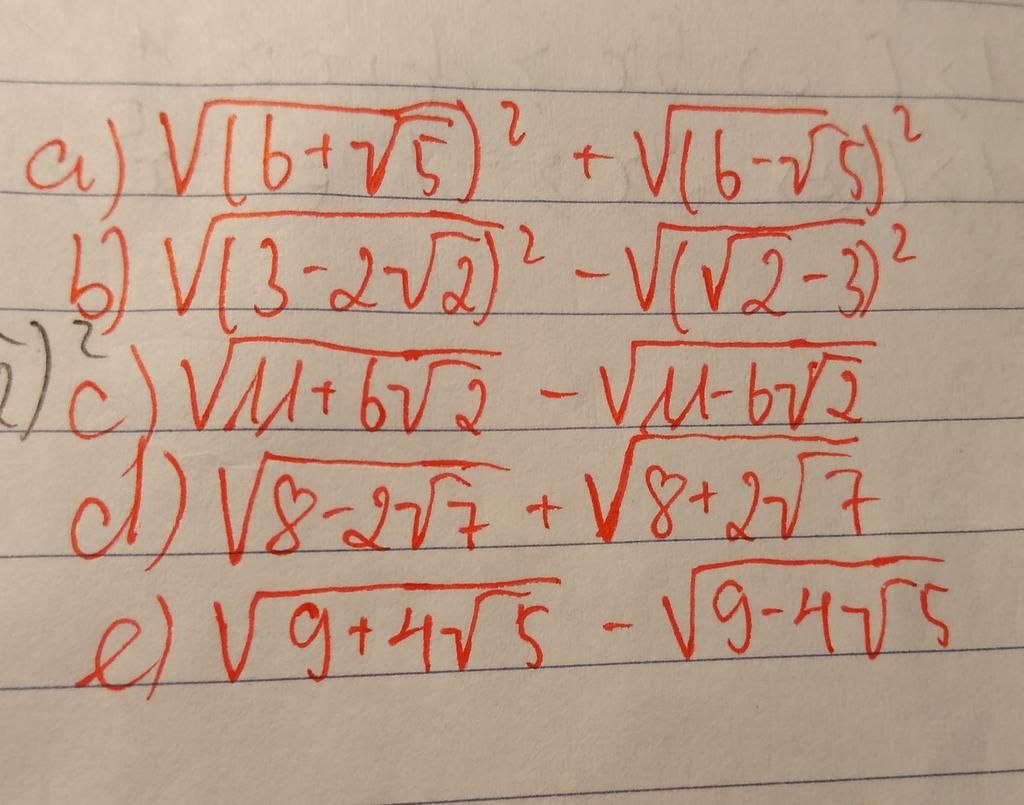 a) √(6+√5)² + √(6-√5)²
b) √(3-2√2)² - √(√2-3)²
c) √11+6√2 - √11-6√2
d) √8-2√7 + √8+2√7
e) √9+4√5 - √9-4√5